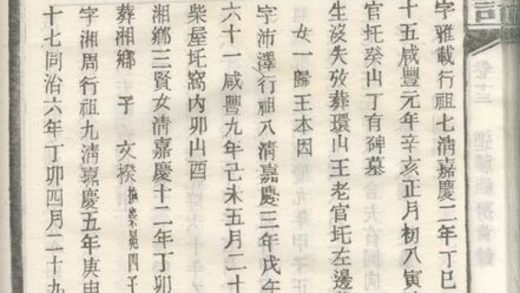 字雅載行祖七清嘉慶二年丁巳
十五咸豐元年辛亥正月初八寅
官坵癸山丁有碑墓
生沒失攷葬環山王老官坵左邊
女一歸王本因
字沛澤行祖八清嘉慶三年戊午
六十一咸豐九年己未五月二十
柴屋坵窩內卯山酉
湘鄉三賢女清嘉慶十二年丁卯
葬湘鄉 子 文揆
字湘周行祖九清嘉慶五年庚申
十七同治六年丁卯四月二十九